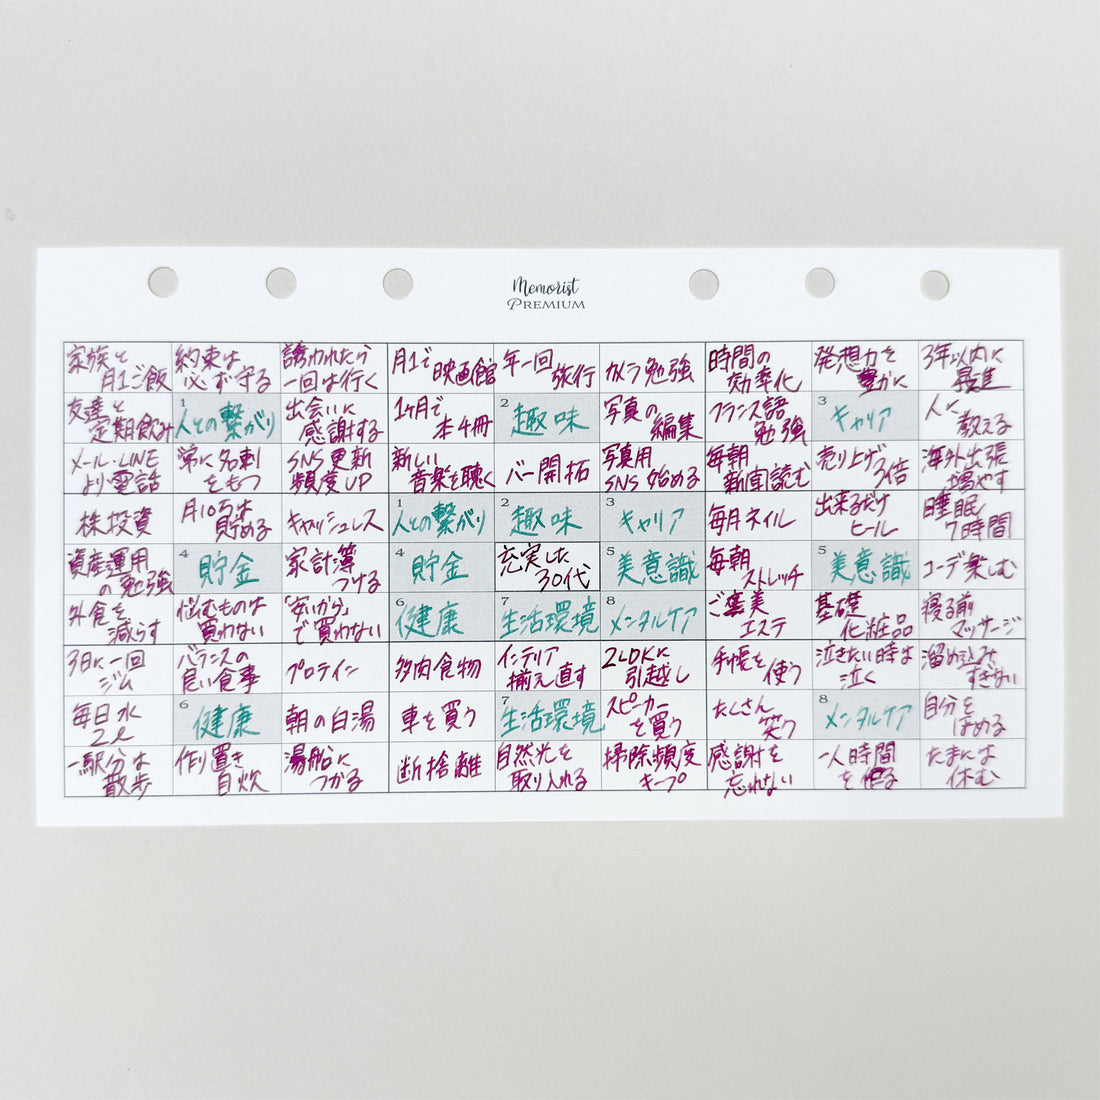 Memorist
PREMIUM
家族と 月1ご飯 約束は 必ず守る 誘われたら 一回は行く 月1で 映画館 年一回 旅行 カメラ勉強 時間の 効率化 発想力を 豊かに 3年以内に 昇進
友達と 定期飲み 1 人との繋がり 出会いに 感謝する 1ヶ月で 本4冊 2 趣味 写真の 編集 フランス語 勉強 3 キャリア 人に 教える
メール・LINE より電話 常に名刺 をもつ SNS更新 頻度UP 新しい 音楽を聴く バー開拓 写真用 SNS始める 毎朝 新聞読む 売り上げ 3倍 海外出張 増やす
株投資 月10万は 貯める キャッシュレス 1 人との繋がり 2 趣味 3 キャリア 毎月ネイル 出来るだけ ヒール 睡眠 7時間
資産運用 の勉強 4 貯金 家計簿 つける 4 貯金 充実した 30代 5 美意識 毎朝 ストレッチ 5 美意識 コーデ楽しむ
外食を 減らす 悩むものは 買わない 「安いから」 で買わない 6 健康 7 生活環境 8 メンタルケア ご褒美 エステ 基礎 化粧品 寝る前 マッサージ
3日に一回 ジム バランスの 良い食事 プロテイン 多肉食物 インテリア 揃え直す 2LDKに 引越し 手帳を 使う 泣きたい時は 泣く 溜め込み すぎない
毎日水 2ℓ 6 健康 朝の白湯 車を買う 7 生活環境 スピーカー を買う たくさん 笑う 8 メンタルケア 自分を ほめる
一駅分は 散歩 作り置き 自炊 湯船に つかる 断捨離 自然光を 取り入れる 掃除頻度 キープ 感謝を 忘れない 一人時間 を作る たまには 休む